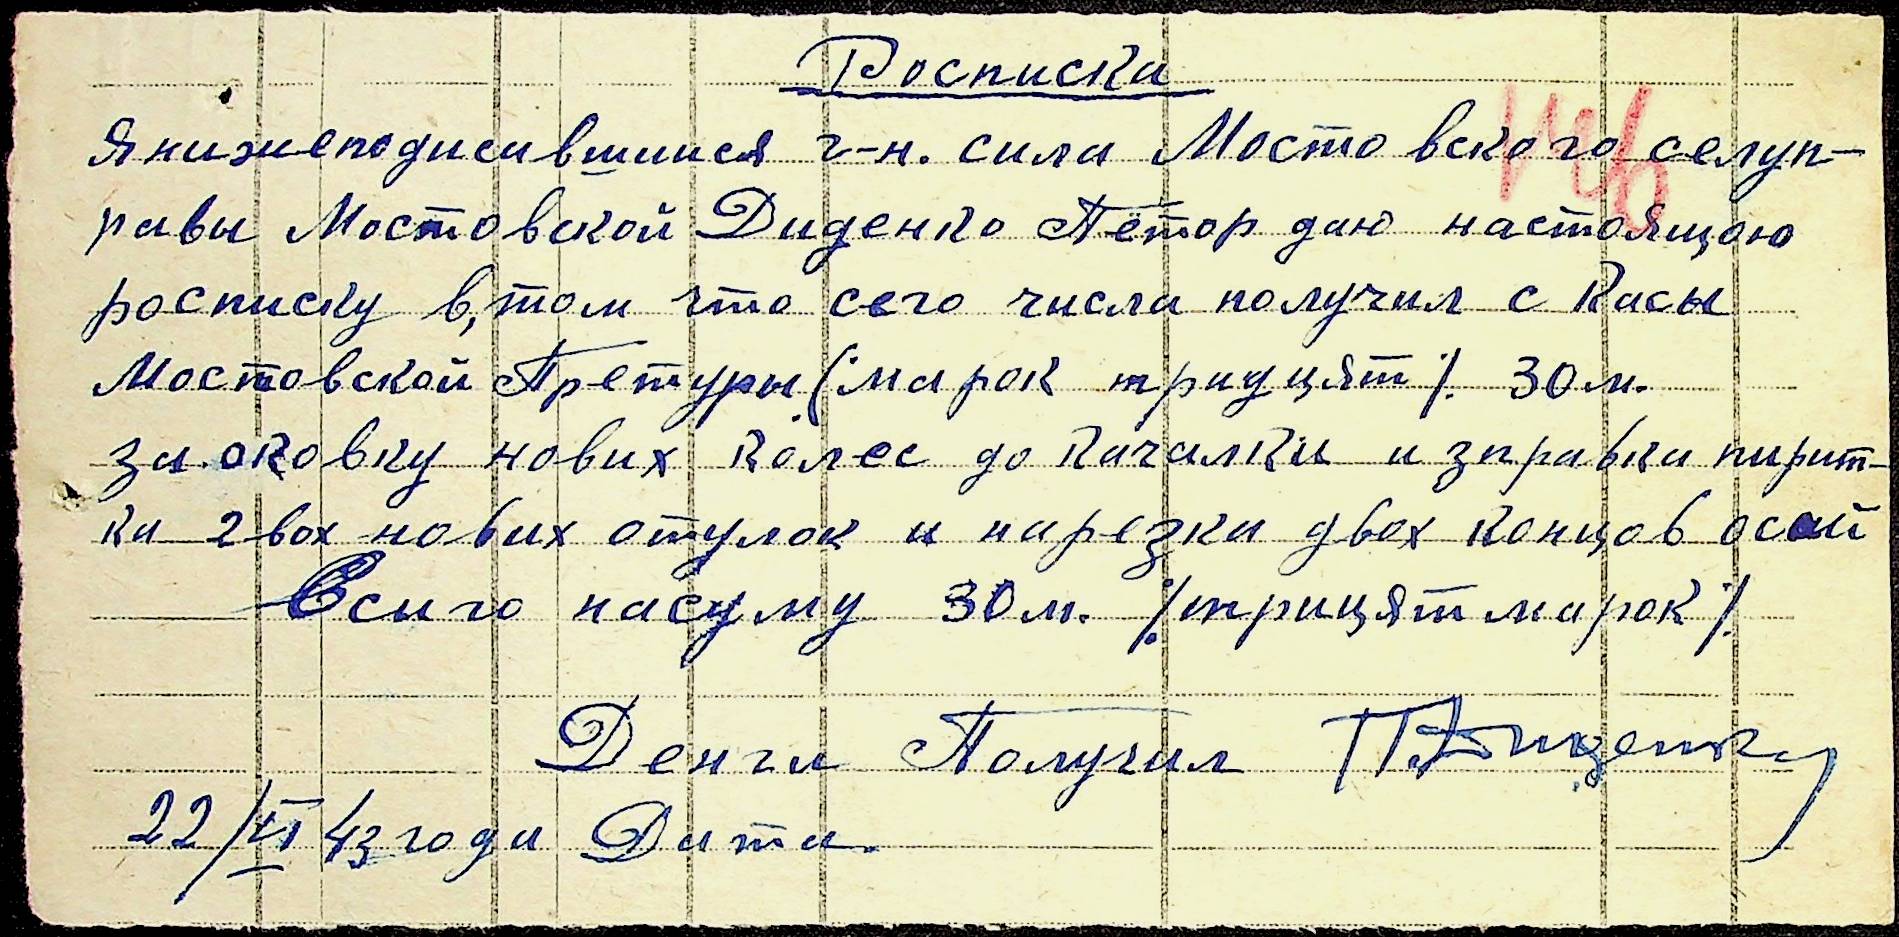 Росписка
Я нижеподисавшийся г-н. сила Мостовского селуп-
равы Мостовской Диденко Пётор даю настоящою
росписку в, том что сего числа получил с Касы
Мостовской Претуры (марок тридцят/. 30 м.
за оковку нових колес до качалки изправка пирит-
ка 2вох нових отулок и нарезка двох концов осай
Всиго насуму 30 м. /.трицят марок/.
Денги Получил П. Диденко
22/VI 43 года Дата.